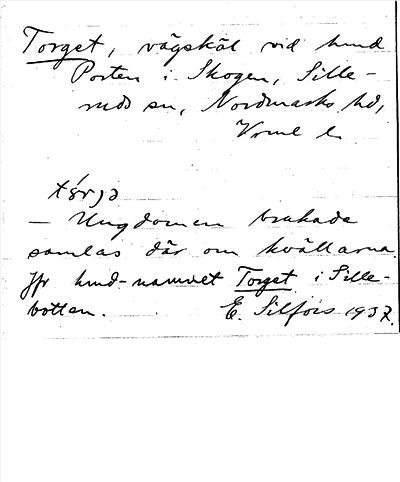 Torget, vägskäl vid hmd
Porten i Skogen, Sille-
ruds sn, Nordmarks hd,
Vrml l.
— Ungdomen brukade
samlas där om kvällarna.
Jfr hmd-namnet Torget i Sille-
botten. E. Silfors 1937.